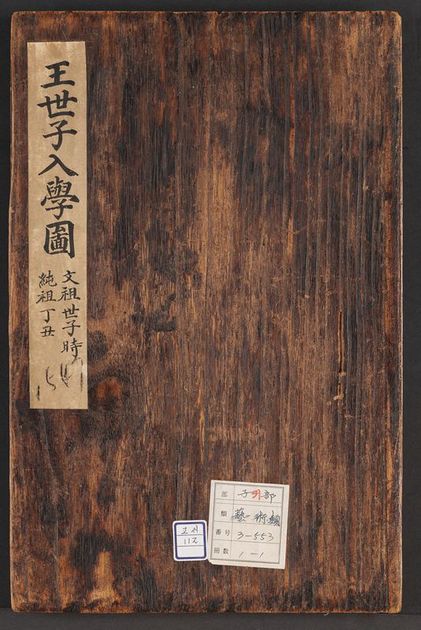 王世子入學圖
文祖世子時
純祖丁丑
112
部 子 部
類 藝術類
番号 3-553
冊数 1-1